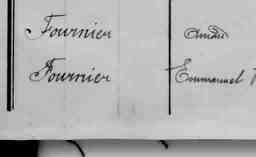 Fournier André
Fournier Emmanuel